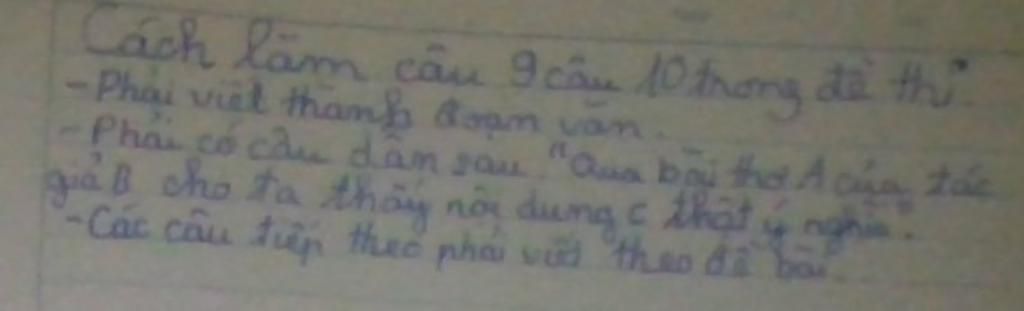 Cách làm câu 9 câu 10 trong đề thi
- Phải viết thành đoạn văn.
- Phải có câu dẫn sau "Qua bài thơ A của tác
giả B cho ta thấy nội dung C thật ý nghĩa".
- Các câu tiếp theo phải viết theo đề bài.